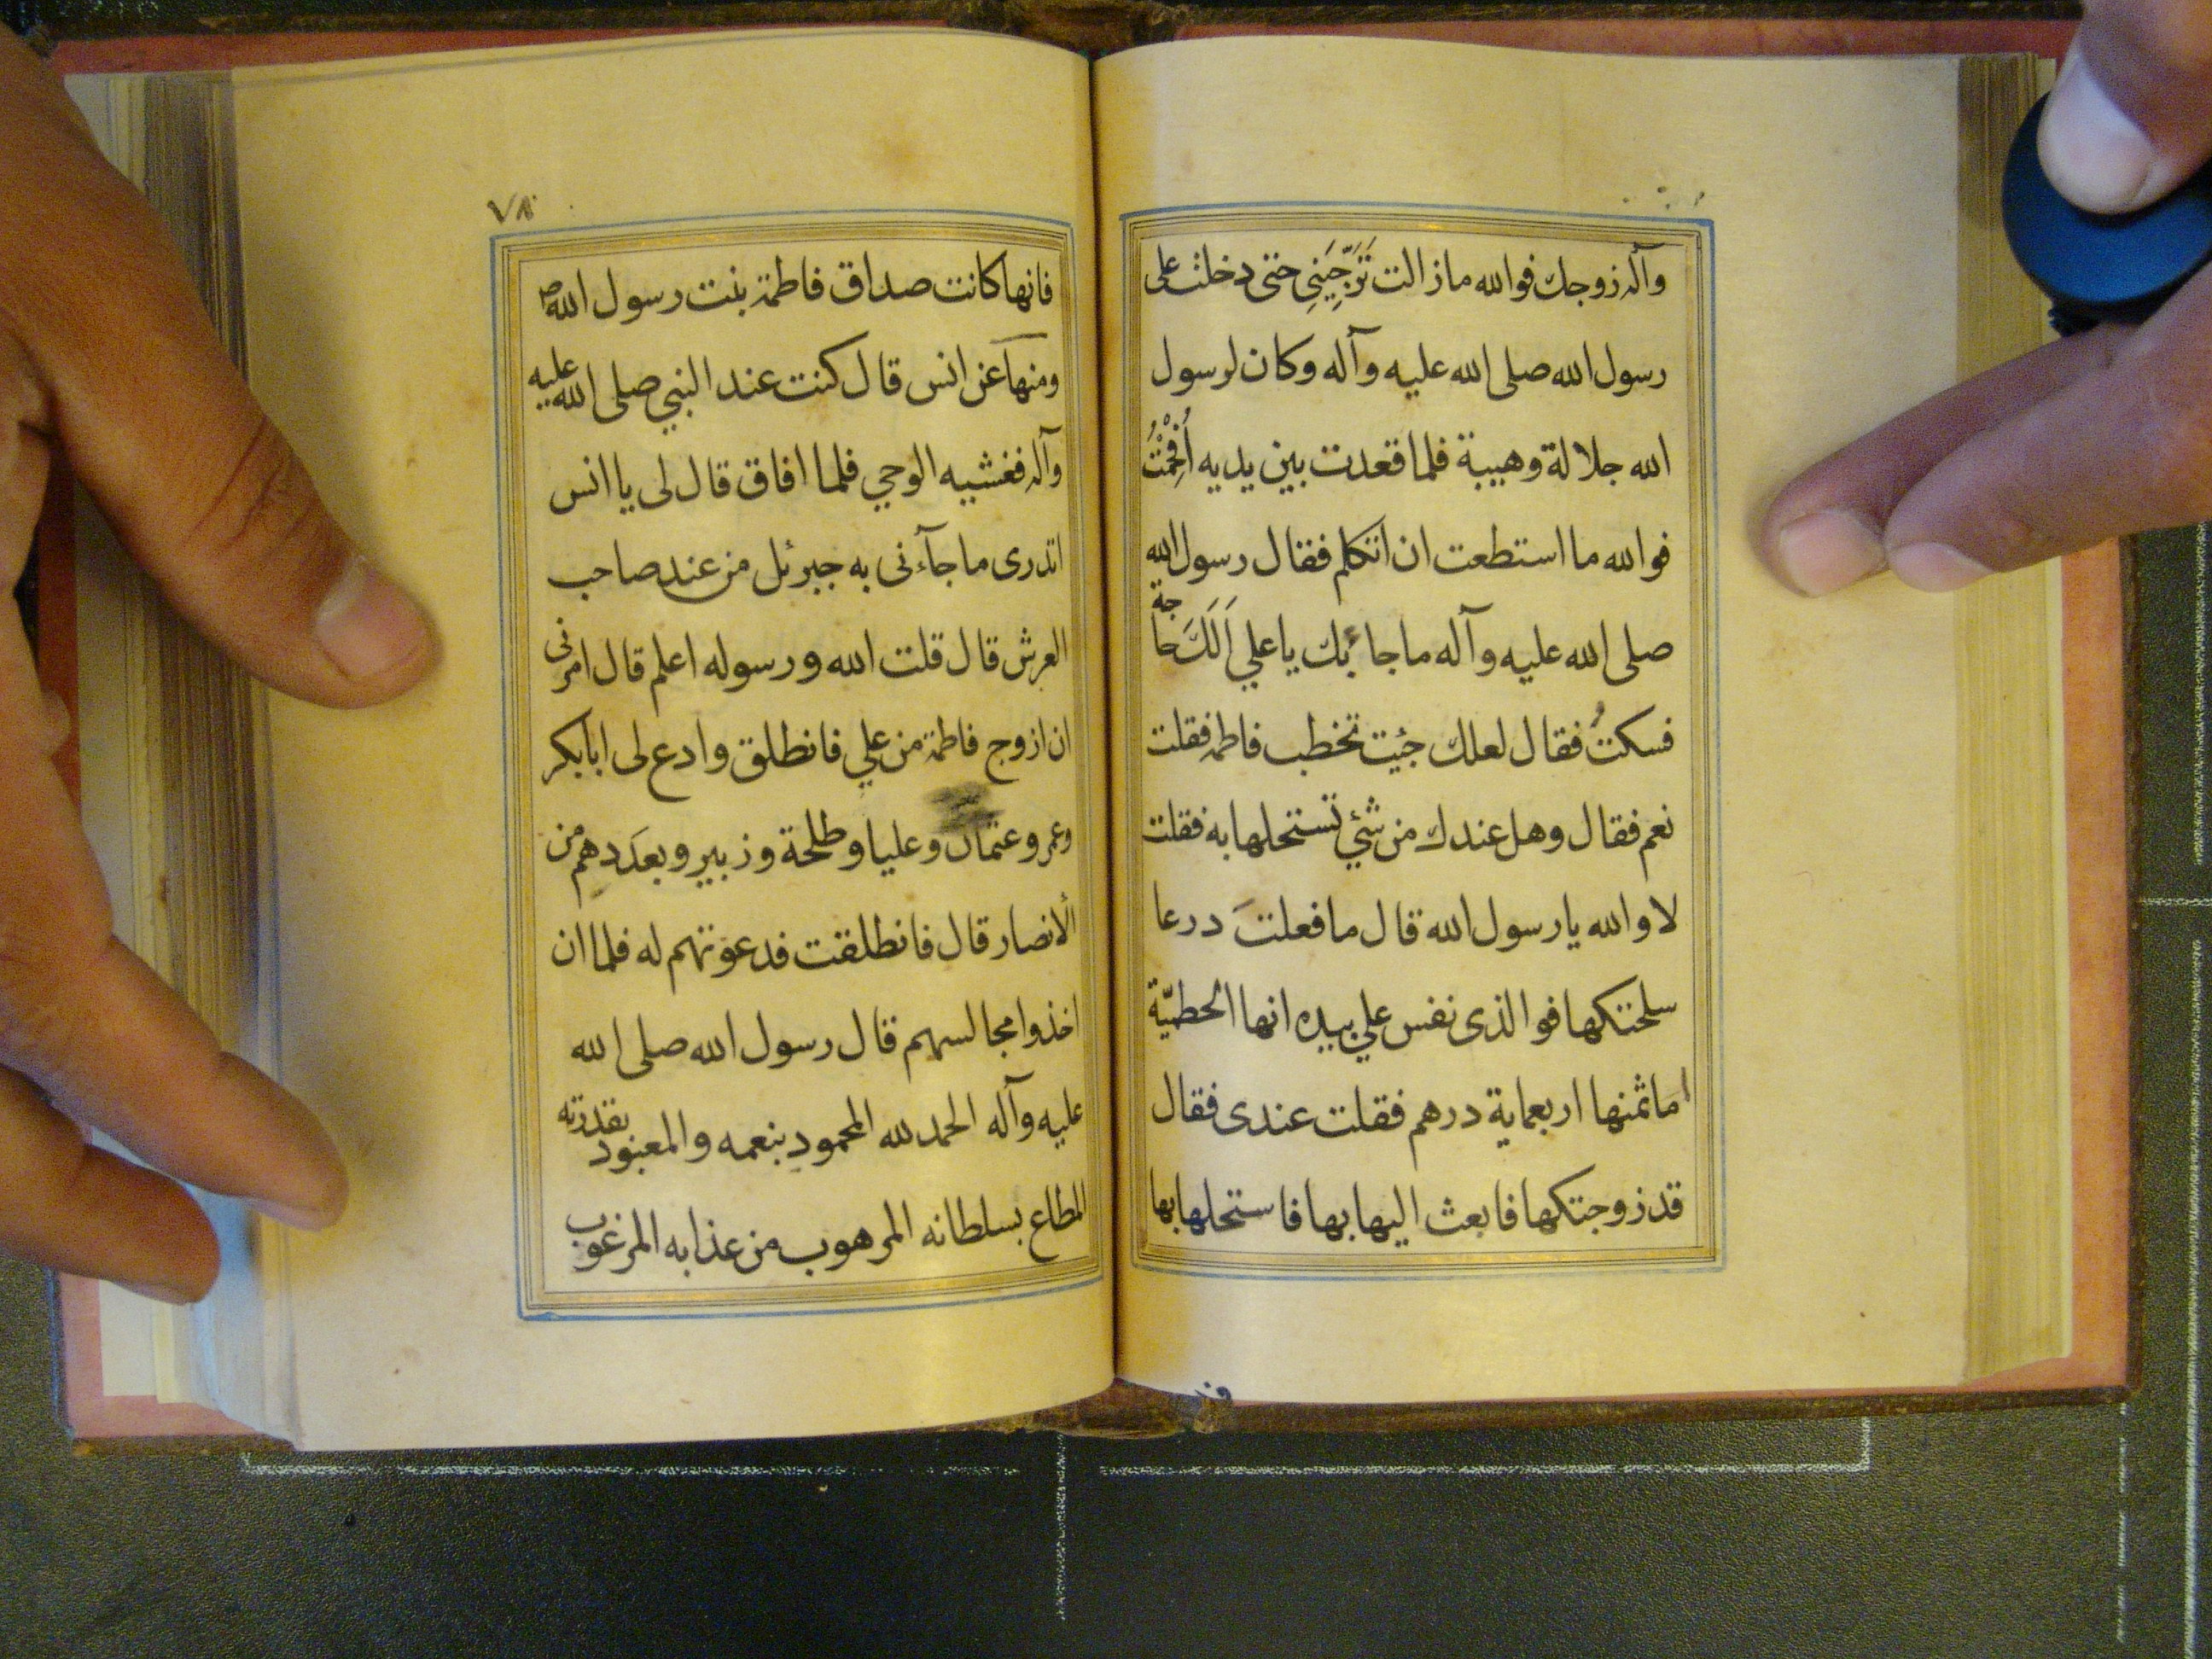 وآله زوجك فوالله مازالت تَرَجِّيَنِي حتى دخلت على
رسول الله صلى الله عليه وآله وكان لرسول
الله جلالة وهيبة فلما قعدت بين يديه اُفحِمْتُ
فوالله ما استطعت ان اتكلم فقال رسول الله
صلى الله عليه وآله ماجاء بك يا علي اَلَكَ حاجة
فسكتُ فقال لعلك جئيت تخطب فاطمة فقلت
نعم فقال وهل عندك من شئي تستحلها به فقلت
لا والله يا رسول الله قال ما فعلتَ درعا
سلحتكها فو الذى نفس علي بيده انها الحطميّة
ما ثمنها اربعماية درهم فقلت عندى فقال
قد زوجتكها فابعث اليها بها فاستحلها بها
٧٨
فانها كانت صداق فاطمة بنت رسول الله ص
ومنها عن انس قال كنت عند النبي صلى الله عليه
وآله فغشيه الوحي فلما افاق قال لى يا انس
اتدرى ما جآءنى به جبرئل من عند صاحب
العرش قال قلت الله ورسوله اعلم قال امرنى
ان ازوج فاطمة من علي فانطلق وادع لى ابابكر
وعمر وعثمان وعليا وطلحة وزبير وبعدَدهم من
الأنصار قال فانطلقت فدعوتهم له فلما ان
اخذوا مجالسهم قال رسول الله صلى الله
عليه وآله الحمد لله المحمود بنعمه والمعبود بقدرته
المطاع بسلطانه المرهوب من عذابه المرغوب